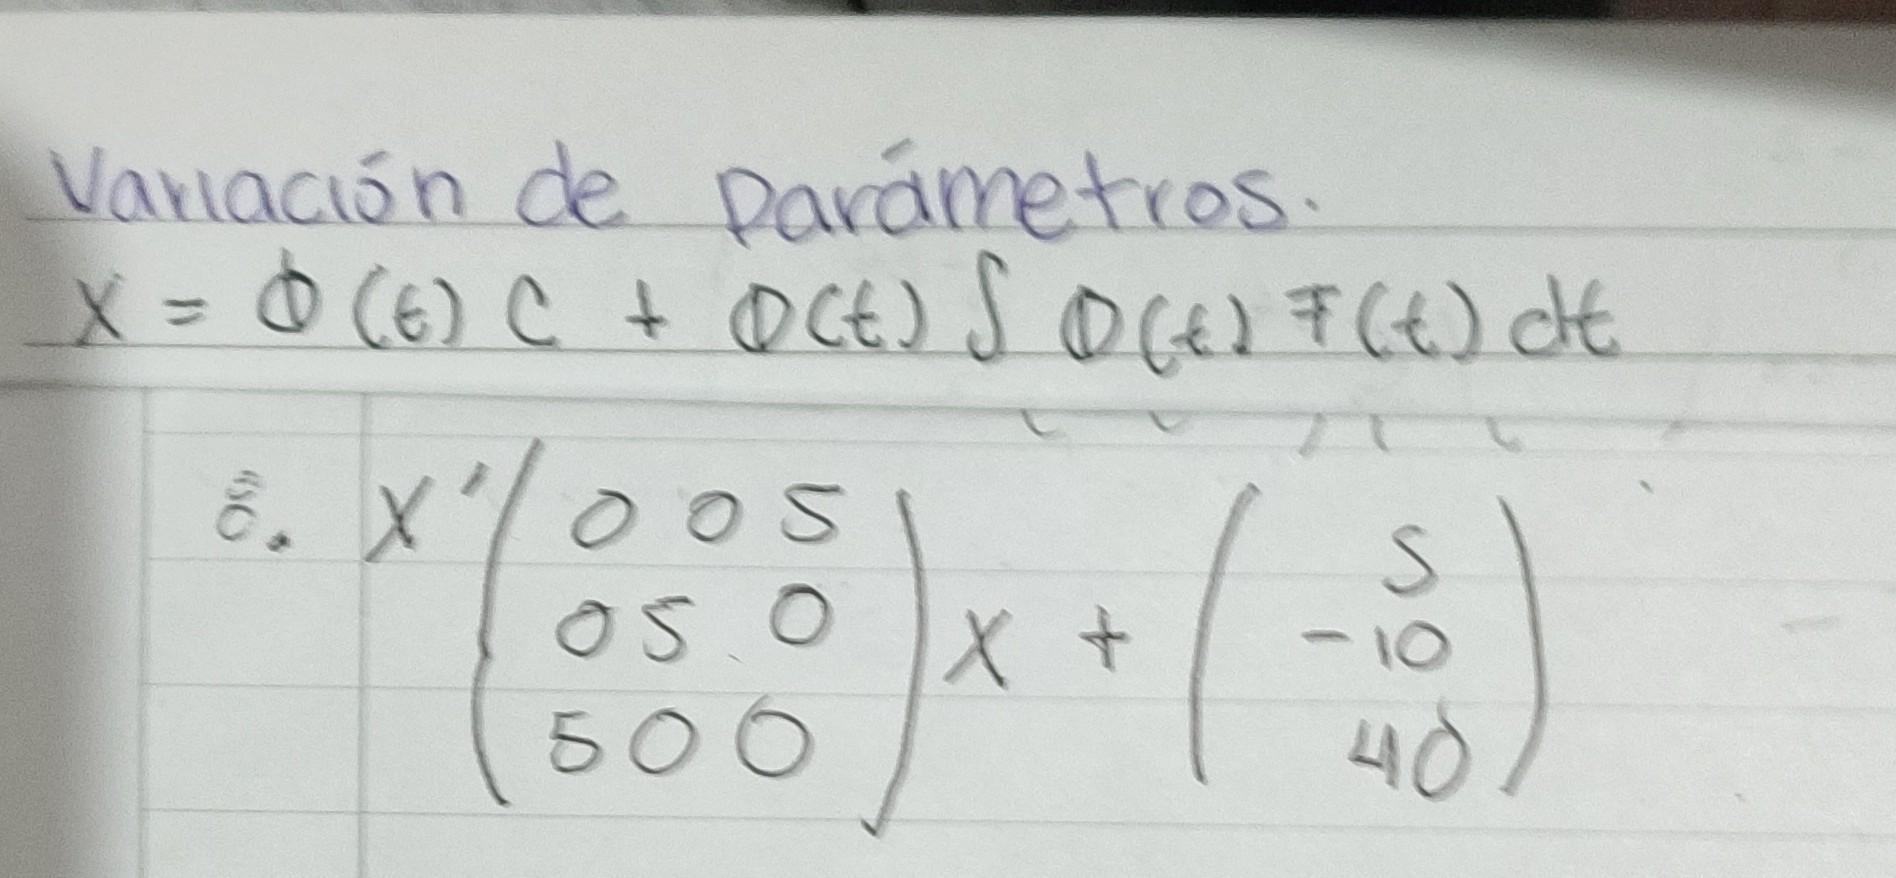 Variación de Parámetros.
X = Φ(t) C + Φ(t) ∫ Φ(t) F(t) dt
8. X' ( 0 0 5
0 5 0
5 0 0 ) X + ( 5
-10
40 )